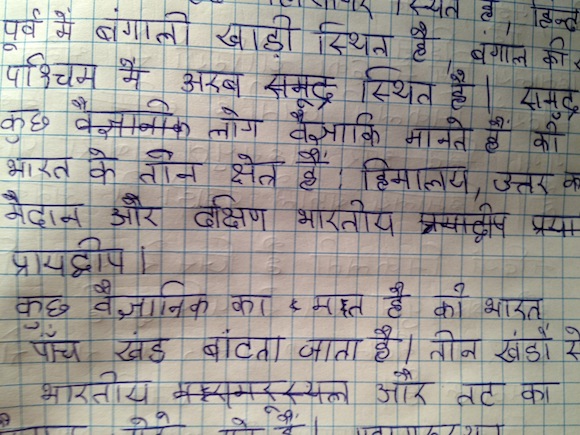 स्थित है, हिन्द
पूर्व में बंगाली खाड़ी स्थित है, बंगाल की
पश्चिम में अरब समुद्र स्थित है। समुद्र
कुछ वैज्ञानिक लोग वैज्ञाकि मानते हैं की
भारत के तीन क्षेत हैं: हिमालय, उत्तर का
मैदान और दक्षिण भारतीय
प्रायद्वीप।
कुछ वैज्ञानिक का मत है की भारत
पाँच खंड बांटता जाता है। तीन खंडों से
भारतीय और तट का